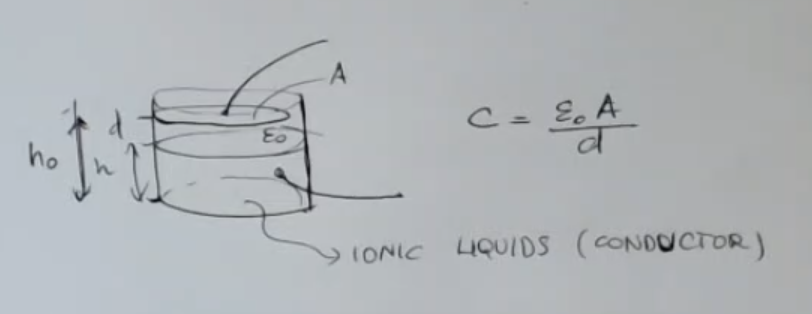 A
d
ε₀
h₀
h
C = ε₀ A / d
IONIC LIQUIDS (CONDUCTOR)